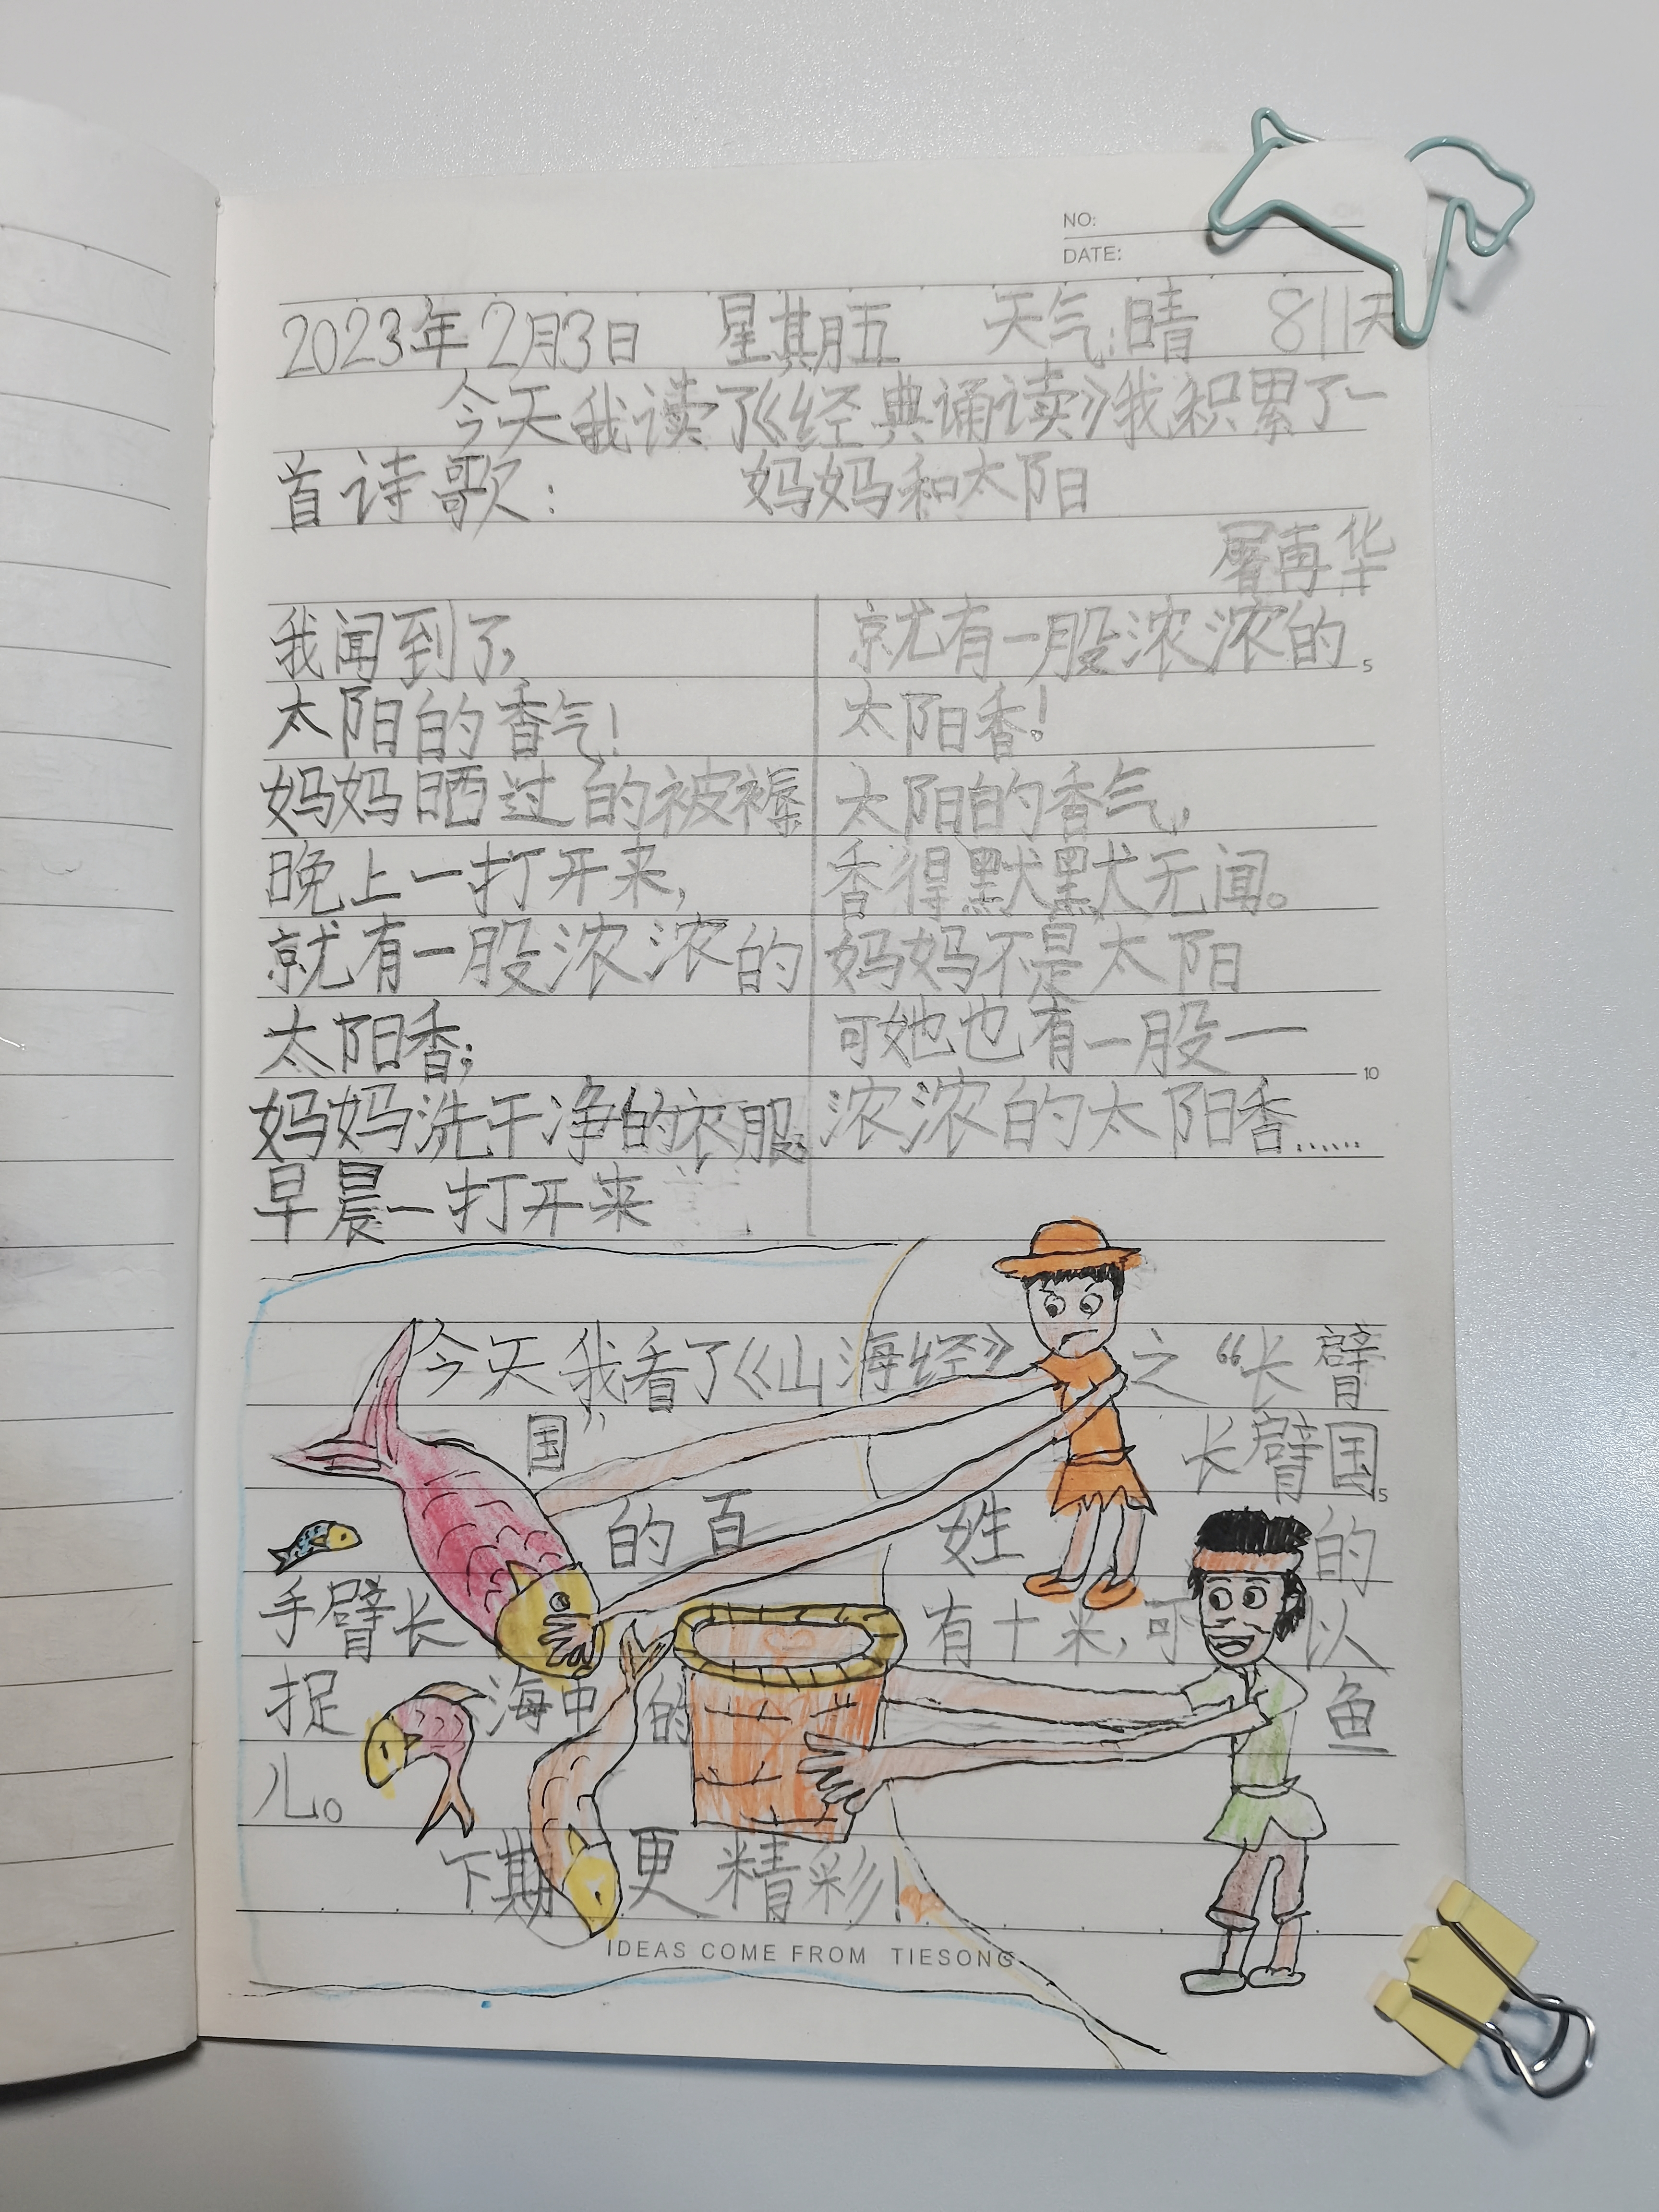 NO:
DATE:
2023年2月3日 星期五 天气:晴 811天
今天我读了《经典诵读》我积累了一
首诗歌: 妈妈和太阳
屠再华
我闻到了,
太阳的香气!
妈妈晒过的被褥
晚上一打开来,
就有一股浓浓的
太阳香;
妈妈洗干净的衣服,
早晨一打开来
就有一股浓浓的
太阳香!
太阳的香气,
香得默默无闻。
妈妈不是太阳
可她也有一股一
浓浓的太阳香……
5
10
今天我看了《山海经》之“长臂
国” 长臂国
的百姓的
手臂长有十米,可以
捉海中的鱼
儿。
下期更精彩!
5
IDEAS COME FROM TIESONG